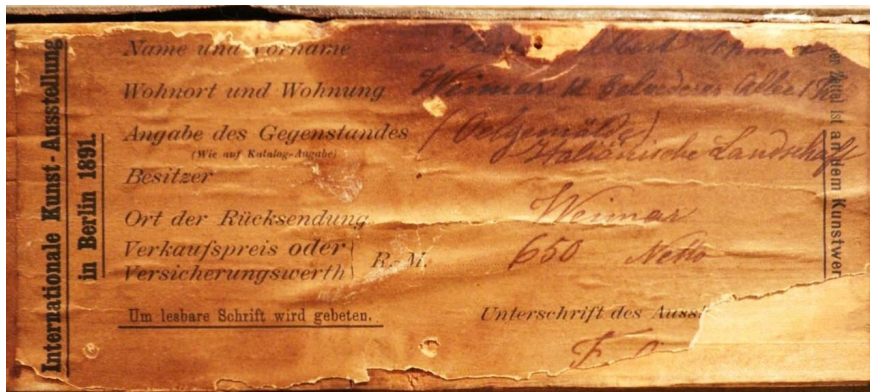 Internationale Kunst-Ausstellung
in Berlin 1891.
Name und Vorname
Wohnort und Wohnung Weimar
Angabe des Gegenstandes (Oelgemälde)
(Wie auf Katalog-Angabe) Italiänische Landschaft
Besitzer
Ort der Rücksendung Weimar
Verkaufspreis oder
Versicherungswerth R.-M. 650 Netto
Um lesbare Schrift wird gebeten.
Unterschrift des
ist an dem Kunstwer